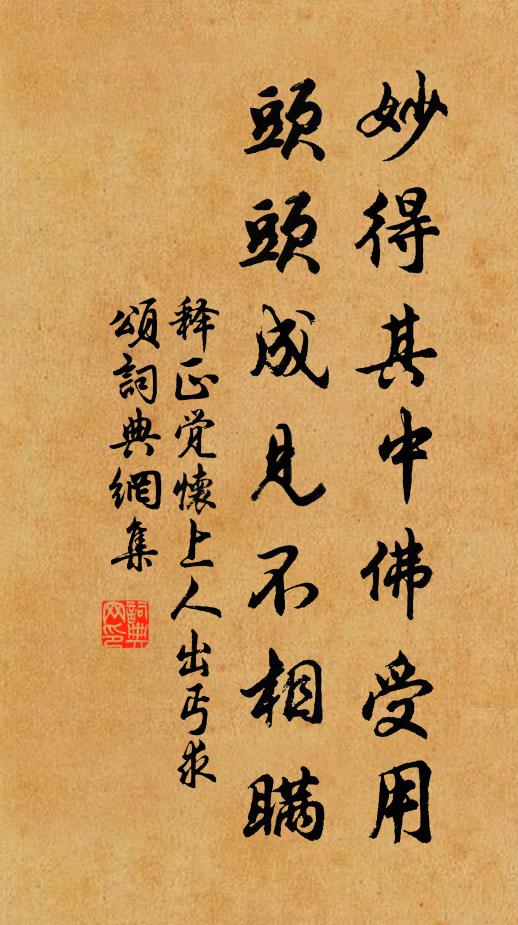 妙得其中佛受用
頭頭成見不相瞞
释正觉懷上人出丐求
頌詞典網集
詞典
网印